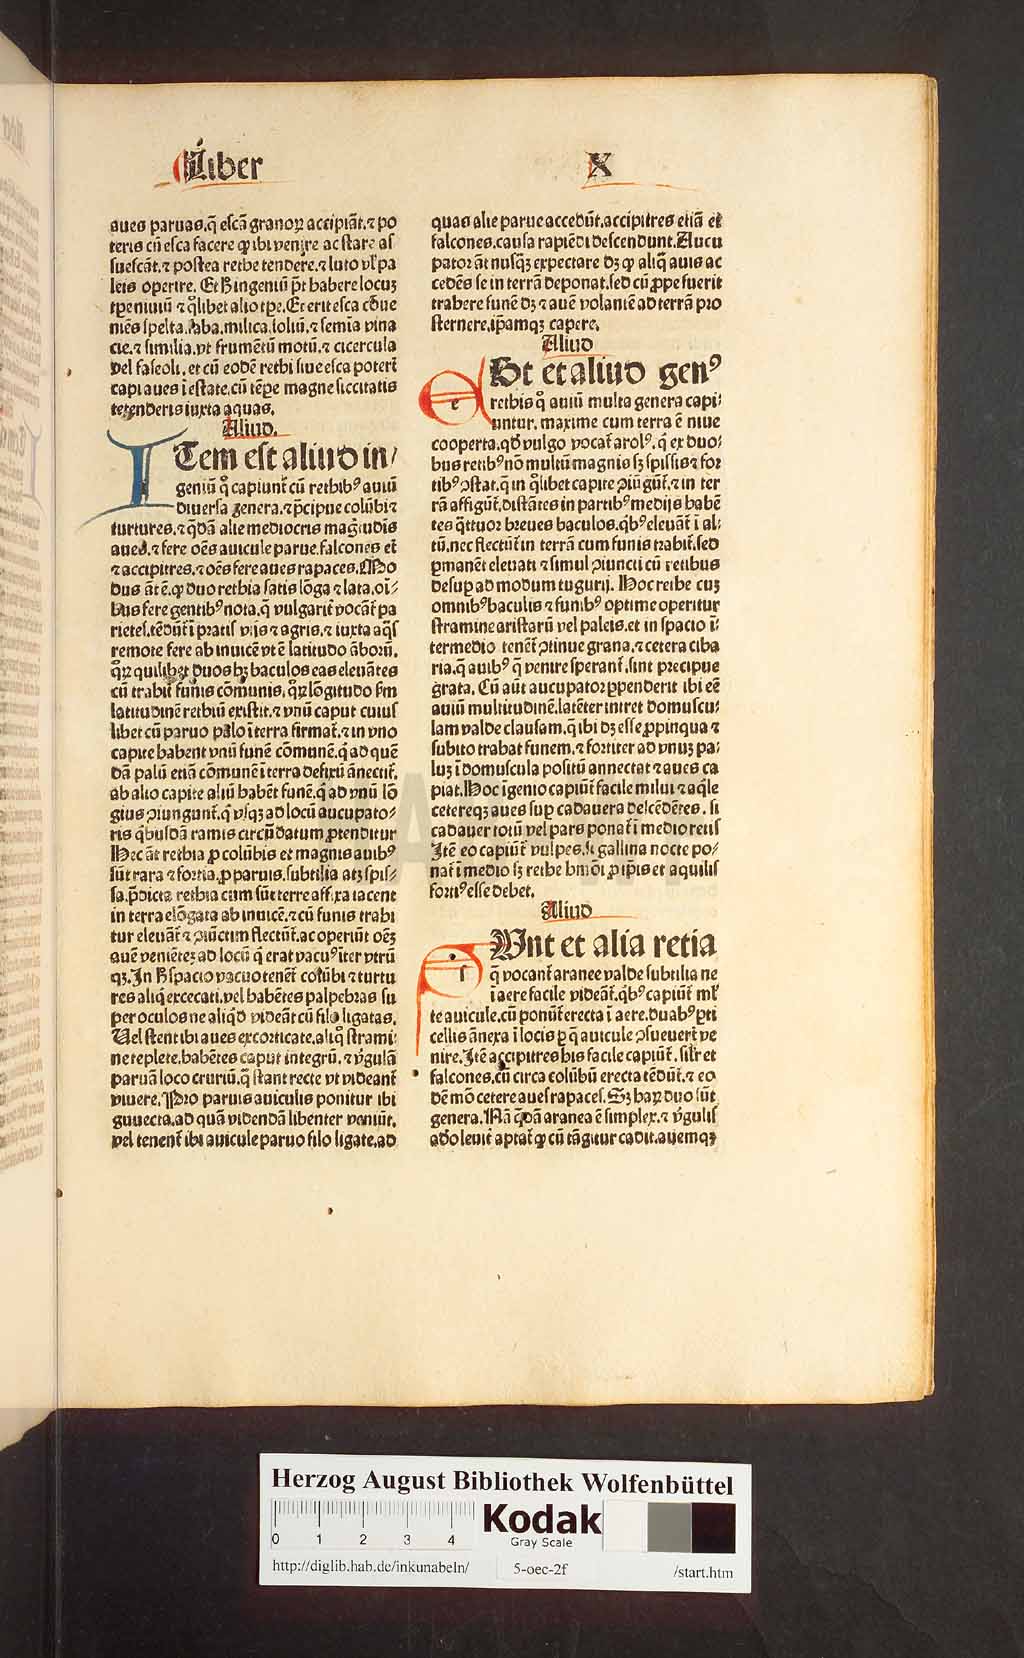 Liber X
aues paruas.q̄ escā granoꝝ accipiāt.⁊ po
teris cū esca facere ꝙ ibi venire ac stare as
suescāt.⁊ postea rethe tendere.⁊ luto vl̓ pa
leis operire. Et ħ ingeniū p̄t habere locuꝫ
tꝑe niuiū ⁊ q̄libet alio tꝑe. Et erit esca cōue
niēs spelta. faba. milica. loliū.⁊ semīa vina
cie.⁊ similia.vt frumētū motū.⁊ cicercula
vel faseoli.et cū eodē rethi siue esca poterit
capi aues ī estate.cū tēpe magne siccitatis
tetenderis iuxta aquas.
Aliud.
ITem est aliud in/
geniū q̊ capiunt̄ cū rethibꝰ auiū
diuersa genera.⁊ p̄cipue colūbi ⁊
turtures.⁊ q̄dā alie mediocris magitudis
aues.⁊ fere oēs auicule parue.falcones et
⁊ accipitres.⁊ oēs fere aues rapaces. Mo
dus āt ē.ꝙ duo rethia satis lōga ⁊ lata.oī⸗
bus fere gentibꝰ nota.q̄ vulgarit̄ vocāt̄ pa
rietes.tēdūt̄ ī pratis vijs ⁊ agris.⁊ iuxta aq̄s
remote fere ab inuicē vt ē latitudo āborū.
qͦꝝ quilibet duos hꝫ baculos eas eleuātes
cū trahit̄ funis cōmunis.qͦꝝ lōgitudo ẜm
latitudinē rethiū existit.⁊ vnū caput cuius
libet cū paruo palo ī terra firmat̄.⁊ in vno
capite habent vnū funē cōmunē.q̄ ad quē
dā palū etiā cōmunē ī terra defixū ānectit̄.
ab alio capite aliū habēt funē.q̄ ad vnū lō
gius ꝯiungunt̄.q̄ vsqꝫ ad locū aucupato⸗
ris q̄busdā ramis circūdatum ꝓtenditur
Hec āt rethia ꝓ colūbis et magnis auibꝰ
sūt rara ⁊ fortia.ꝓ paruis.subtilia atqꝫ spis⸗
sa.p̄dicta rethia cum sūt terre affixa iacent
in terra elōgata ab inuicē.⁊ cū funis trahi
tur eleuāt̄ ⁊ ꝯiūctim flectūt̄.ac operiūt oēꝫ
auē venieteꝫ ad locū q̄ erat vacuꝰ iter vtrū
qꝫ. In ħ spacio vacuo tenēt̄ colūbi ⁊ turtu
res aliq̄ excecati.vel habētes palpebras su
per oculos ne aliq̄d videāt cū filo ligatas.
Vel stent ibi aues excorticate.aliq̊ strami⸗
ne replete.habētes caput integrū.⁊ v̓gulā
paruā loco cruriū.q̄ stant recte vt videant̄
viuere. Pro paruis auiculis ponitur ibi
guuecta.ad quā videndā libenter veniūt.
vel tenent̄ ibi auicule paruo filo ligate.ad
quas alie parue accedūt.accipitres etiā et
falcones.causa rapiēdi descendunt. Aucu
pator āt nusq̄ꝫ expectare dꝫ ꝙ aliq̄ auis ac
cedēs se in terrā deponat.sed cū ꝓpe fuerit
trahere funē dꝫ ⁊ auē volantē ad terrā pro
sternere.ip̄amqꝫ capere.
Aliud
eSt et aliud genꝰ
rethis q̊ auiū multa genera capi⸗
untur. maxime cum terra ē niue
cooperta.qd̄ vulgo vocat̄ arolꝰ.q̄ ex duo⸗
bus retibꝰ nō multū magnis sꝫ spissis ⁊ for
tibꝰ ꝯstat.q̄ in q̄libet capite ꝯiūgūt̄.⁊ in ter
rā affigūt̄.distātes in partibꝰ medijs habē
tes q̄ttuor breues baculos.q̄bꝰ eleuāt̄ ī al⸗
tū.nec flectūt̄ in terrā cum funis trahit̄.sed
ꝑmanēt eleuati ⁊ simul ꝯiuncti cū retibus
desuꝑ ad modum tugurij. Hoc rethe cuꝫ
omnibꝰ baculis ⁊ funibꝰ optime operitur
stramine aristarū vel paleis.et in spacio ī⸗
termedio tenēt̄ ꝯtinue grana.⁊ cetera ciba
ria.q̄ auibꝰ q̄ venire sperant̄.sint precipue
grata. Cū aūt aucupator ꝑpenderit ibi eē
auiū multitudinē.latēter intret domuscu⸗
lam valde clausam.q̄ ibi dꝫ esse ꝓpinqua ⁊
subito trahat funem.⁊ fortiter ad vnuꝫ pa⸗
luꝫ ī domuscula positū annectat ⁊ aues ca
piat. Hoc īgenio capiūt̄ facile milui ⁊ aq̄le
cetereqꝫ aues suꝑ cadauera descēdētes. si
cadauer totū vel pars ponat̄ ī medio retis
Itē eo capiūt̄ vulpes.si gallina nocte po⸗
nat̄ ī medio sꝫ rethe hmōi ꝓ ip̄is et aquilis
fortiꝰ esse debet.
Aliud
sVnt et alia retia
q̄ vocant̄ aranee valde subtilia ne
ī aere facile videāt̄.q̄bꝰ capiūt̄ ml̓
te auicule.cū ponūt̄ erecta ī aere.duabꝰ ꝑti
cellis ānexa ī locis ꝑ q̄ auicule ꝯsueuert̄ ve
nire. Itē accipitres his facile capiūt̄. sil̓r et
falcones.cū circa colūbū erecta tēdūt̄.⁊ eo
dē mō cetere aues rapaces. Sꝫ haꝝ duo sūt
genera. Nā q̄dā aranea ē simplex.⁊ v̓gulis
adoleuit̄ aptat̄ ꝙ cū tāgitur cadit.auemqꝫ
Herzog August Bibliothek Wolfenbüttel
0 1 2 3 4
Kodak
Gray Scale
http://diglib.hab.de/inkunabeln/ 5-oec-2f /start.htm